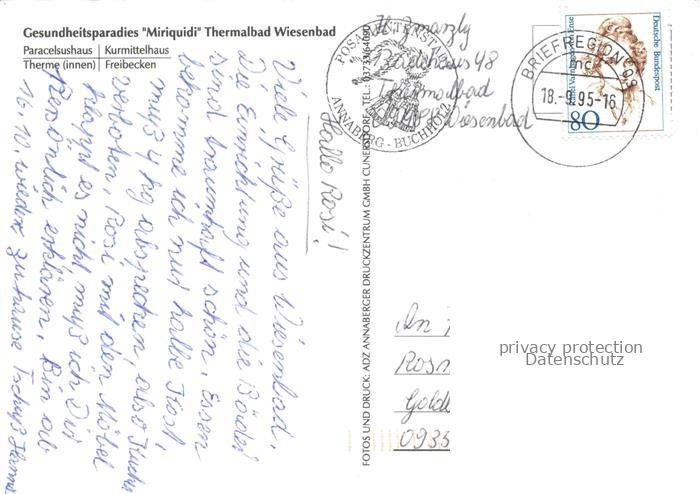 Gesundheitsparadies "Miriquidi" Thermalbad Wiesenbad
Paracelsushaus | Kurmittelhaus
Therme (innen) | Freibecken
Hallo Rosi!
Viele Grüße aus Wiesenbad.
Die Einrichtung und die Bäder
sind traumhaft schön, Essen
bekomme ich nur halbe Kost,
muß 4 kg abspecken, also Kuchen
verboten, Rosi mit den Möbel
klappt es nicht muß ich Dir
persönlich erklären, Bin ab
16.10. wieder zuhause Tschüß
POSAMENTENSTADT
ANNABERG-BUCHHOLZ
48
Thermalbad
Wiesenbad
BRIEFREGION 09
18.-9.95-16
Deutsche Bundespost
80
FOTOS UND DRUCK: ADZ ANNABERGER DRUCKZENTRUM GMBH CUNERSDORF · TEL.: 03733/64090
An
Rosi
Gold
0933
privacy protection
Datenschutz